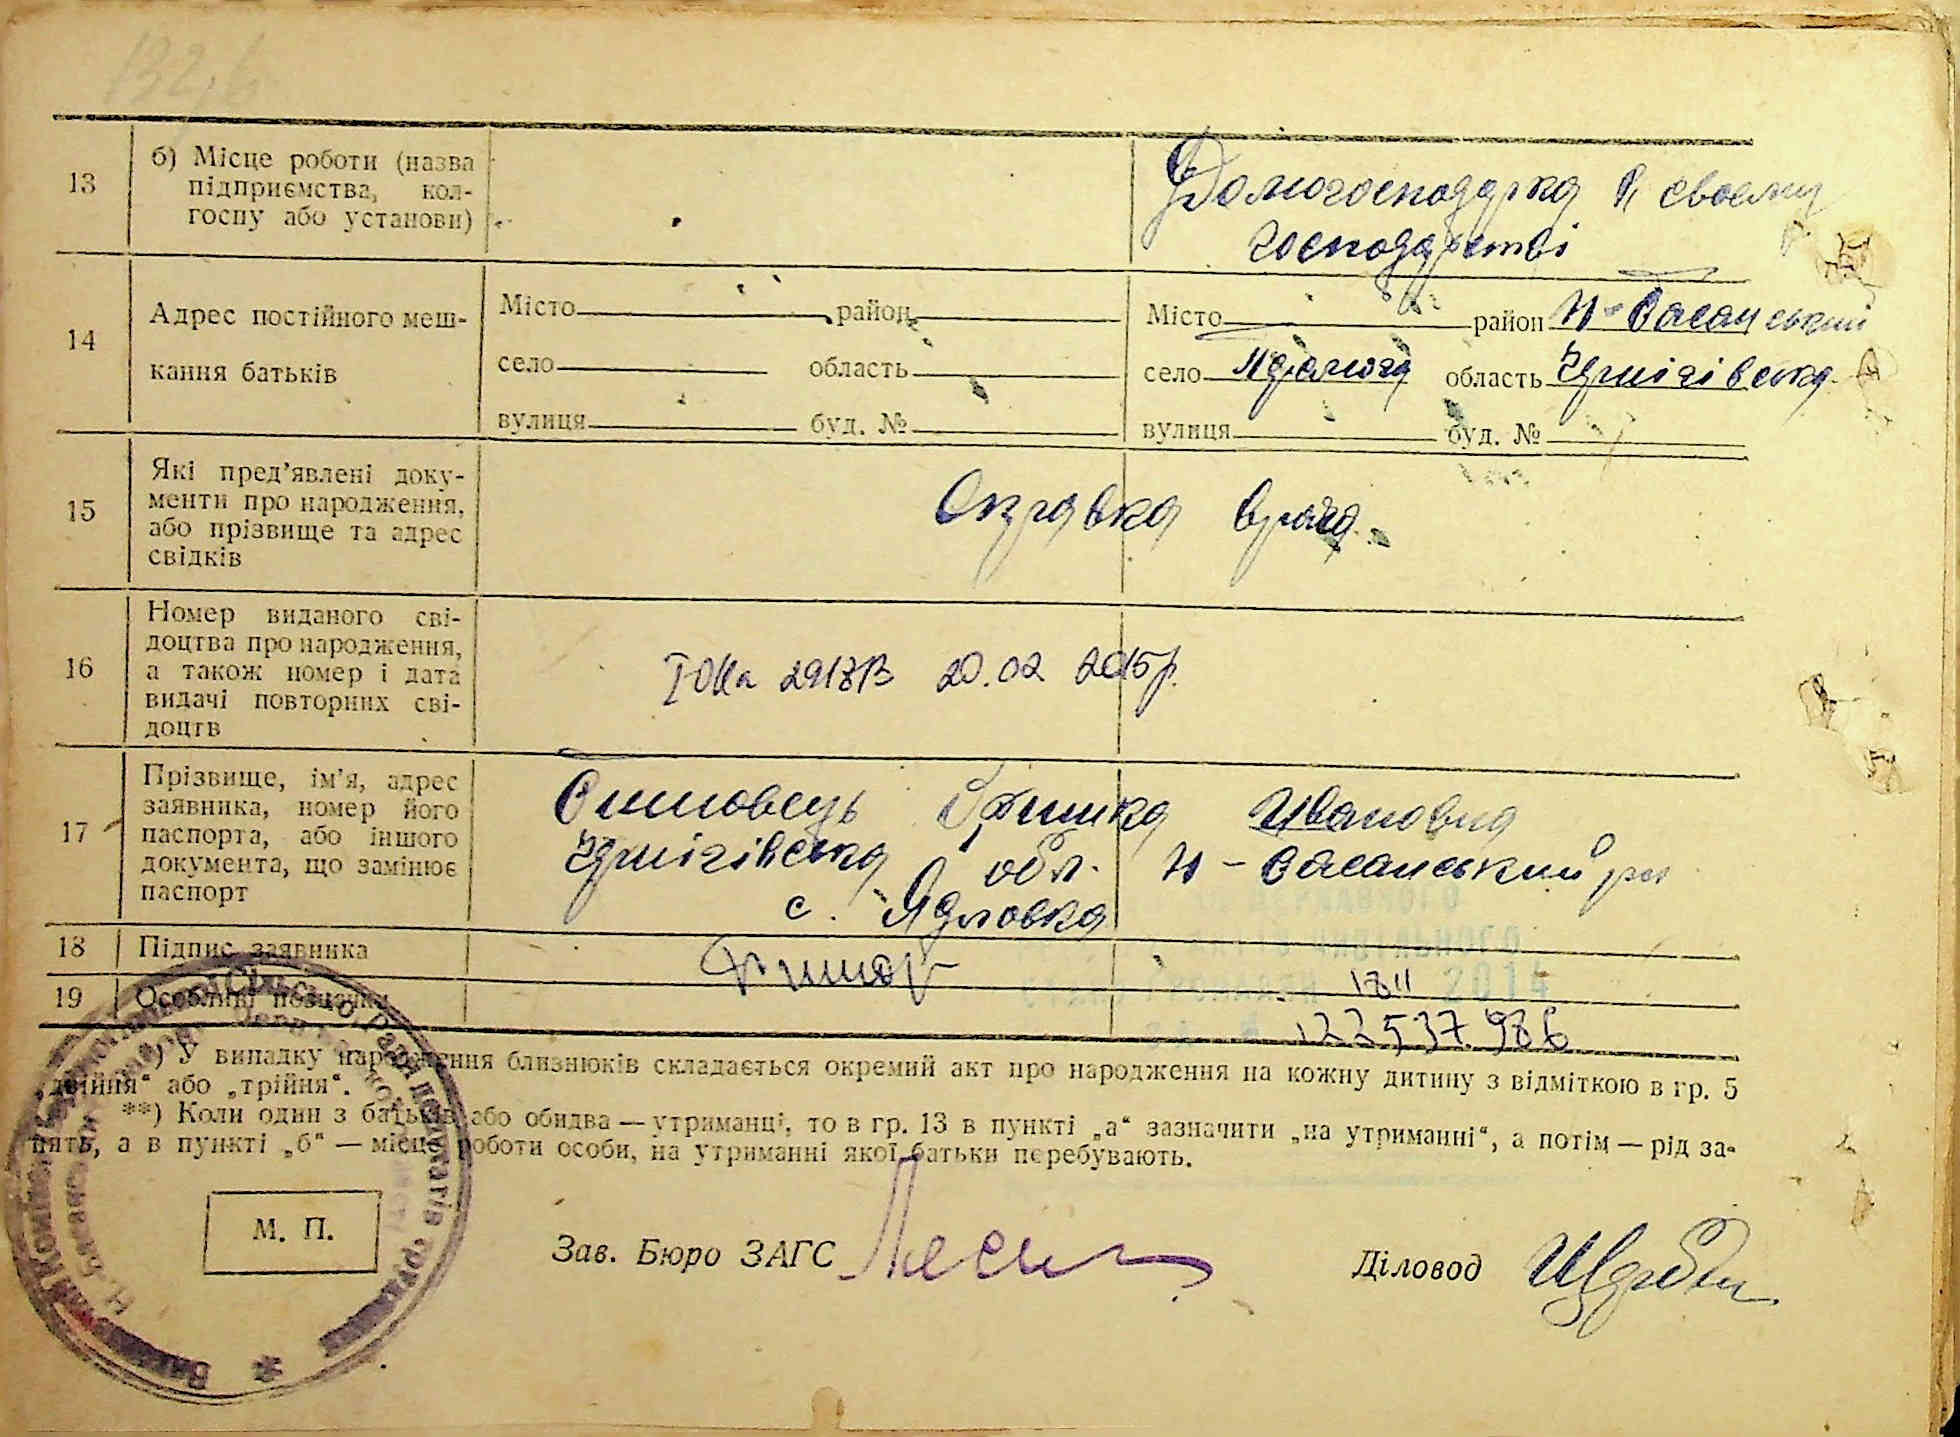 13
б) Місце роботи (назва
підприємства, кол-
госпу або установи)
Домогосподарка в своєму
господарстві
14
Адрес постійного меш-
кання батьків
Місто район
село область
вулиця буд. №
Місто район Н-Басанський
село Ядловка область Чернігівська
вулиця буд. №
15
Які пред’явлені доку-
менти про народження,
або прізвище та адрес
свідків
Справка врача
16
Номер виданого сві-
доцтва про народження,
а також номер і дата
видачі повторних сві-
доцтв
291813 20.02 2015р.
17
Прізвище, ім’я, адрес
заявника, номер його
паспорта, або іншого
документа, що замінює
паспорт
Ивановна
Чернігівська обл. Н-Басанський рн
с. Ядловка
18
Підпис заявника
19
Особливі позначки
ДЕРЖАВНОГО
ЦИВІЛЬНОГО
ГРОМАДЯН 2014
1811
122537986
*) У випадку народження близнюків складається окремий акт про народження на кожну дитину з відміткою в гр. 5
„двійня“ або „трійня“.
**) Коли один з батьків або обидва — утриманці, то в гр. 13 в пункті „а“ зазначити „на утриманні“, а потім — рід за-
нять, а в пункті „б“ — місце роботи особи, на утриманні якої батьки перебувають.
М. П.
Зав. Бюро ЗАГС
Діловод